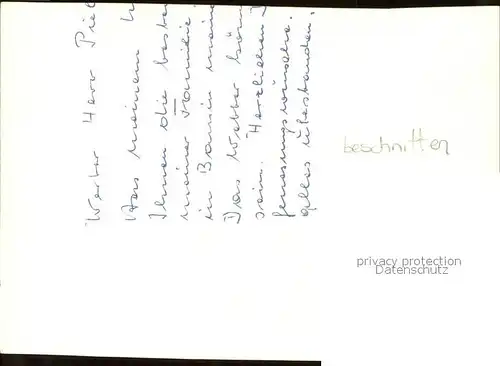 Werter Herr Piel
Aus meinem U
Ihnen die beste
meiner Familie.
in Bansin meine
Das Wetter kön
sein. Herzlichen D
Genesungswünsche.
alles überstanden,
beschnitten
privacy protection
Datenschutz